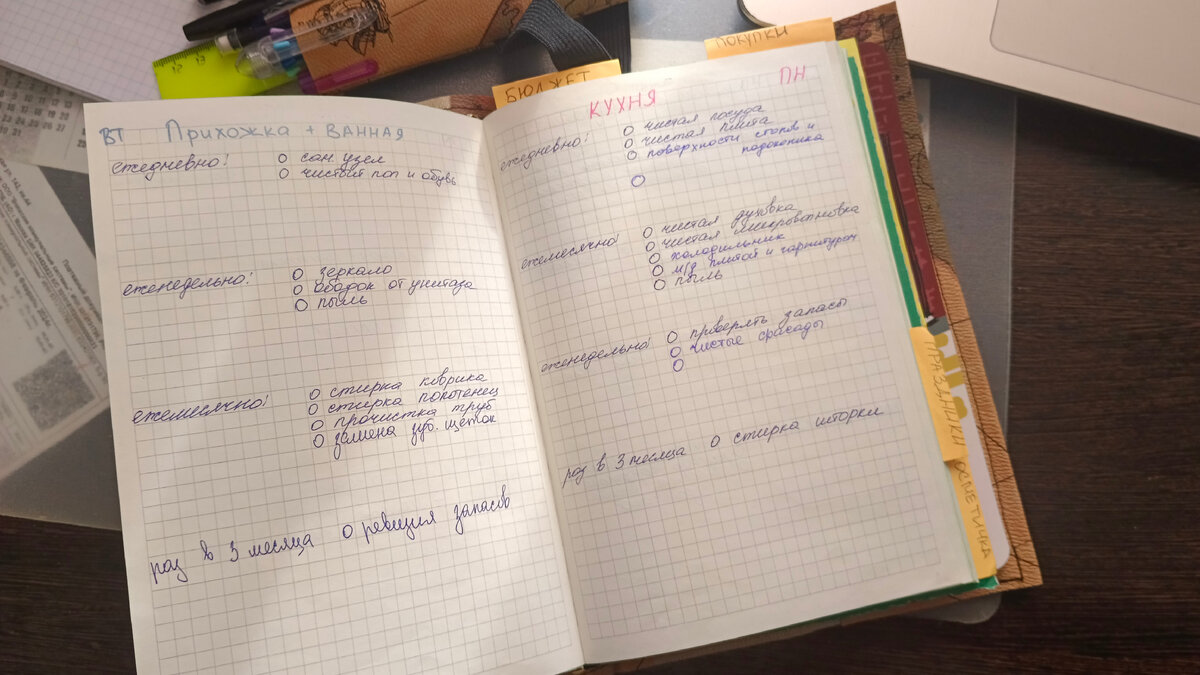 ВТ Прихожка + ВАННАЯ
ежедневно!
О сан. узел
О чистый пол и обувь
еженедельно!
О зеркало
О ободок от унитаза
О пыль
ежемесячно!
О стирка коврика
О стирка полотенец
О прочистка труб
О замена зуб. щёток
раз в 3 месяца О ревизия запасов
БЮДЖЕТ
ПОКУПКИ
КУХНЯ ПН
ежедневно!
О чистая посуда
О чистая плита
О поверхности столов и
подоконника
О
ежемесячно!
О чистая духовка
О чистая микроволновка
О холодильник
О м/д плитой и гарнитуром
О пыль
еженедельно!
О проверять запасы
О чистые фасады
О
раз в 3 месяца О стирка шторки
ПРАЗДНИКИ
ОСМЕТИЧКА